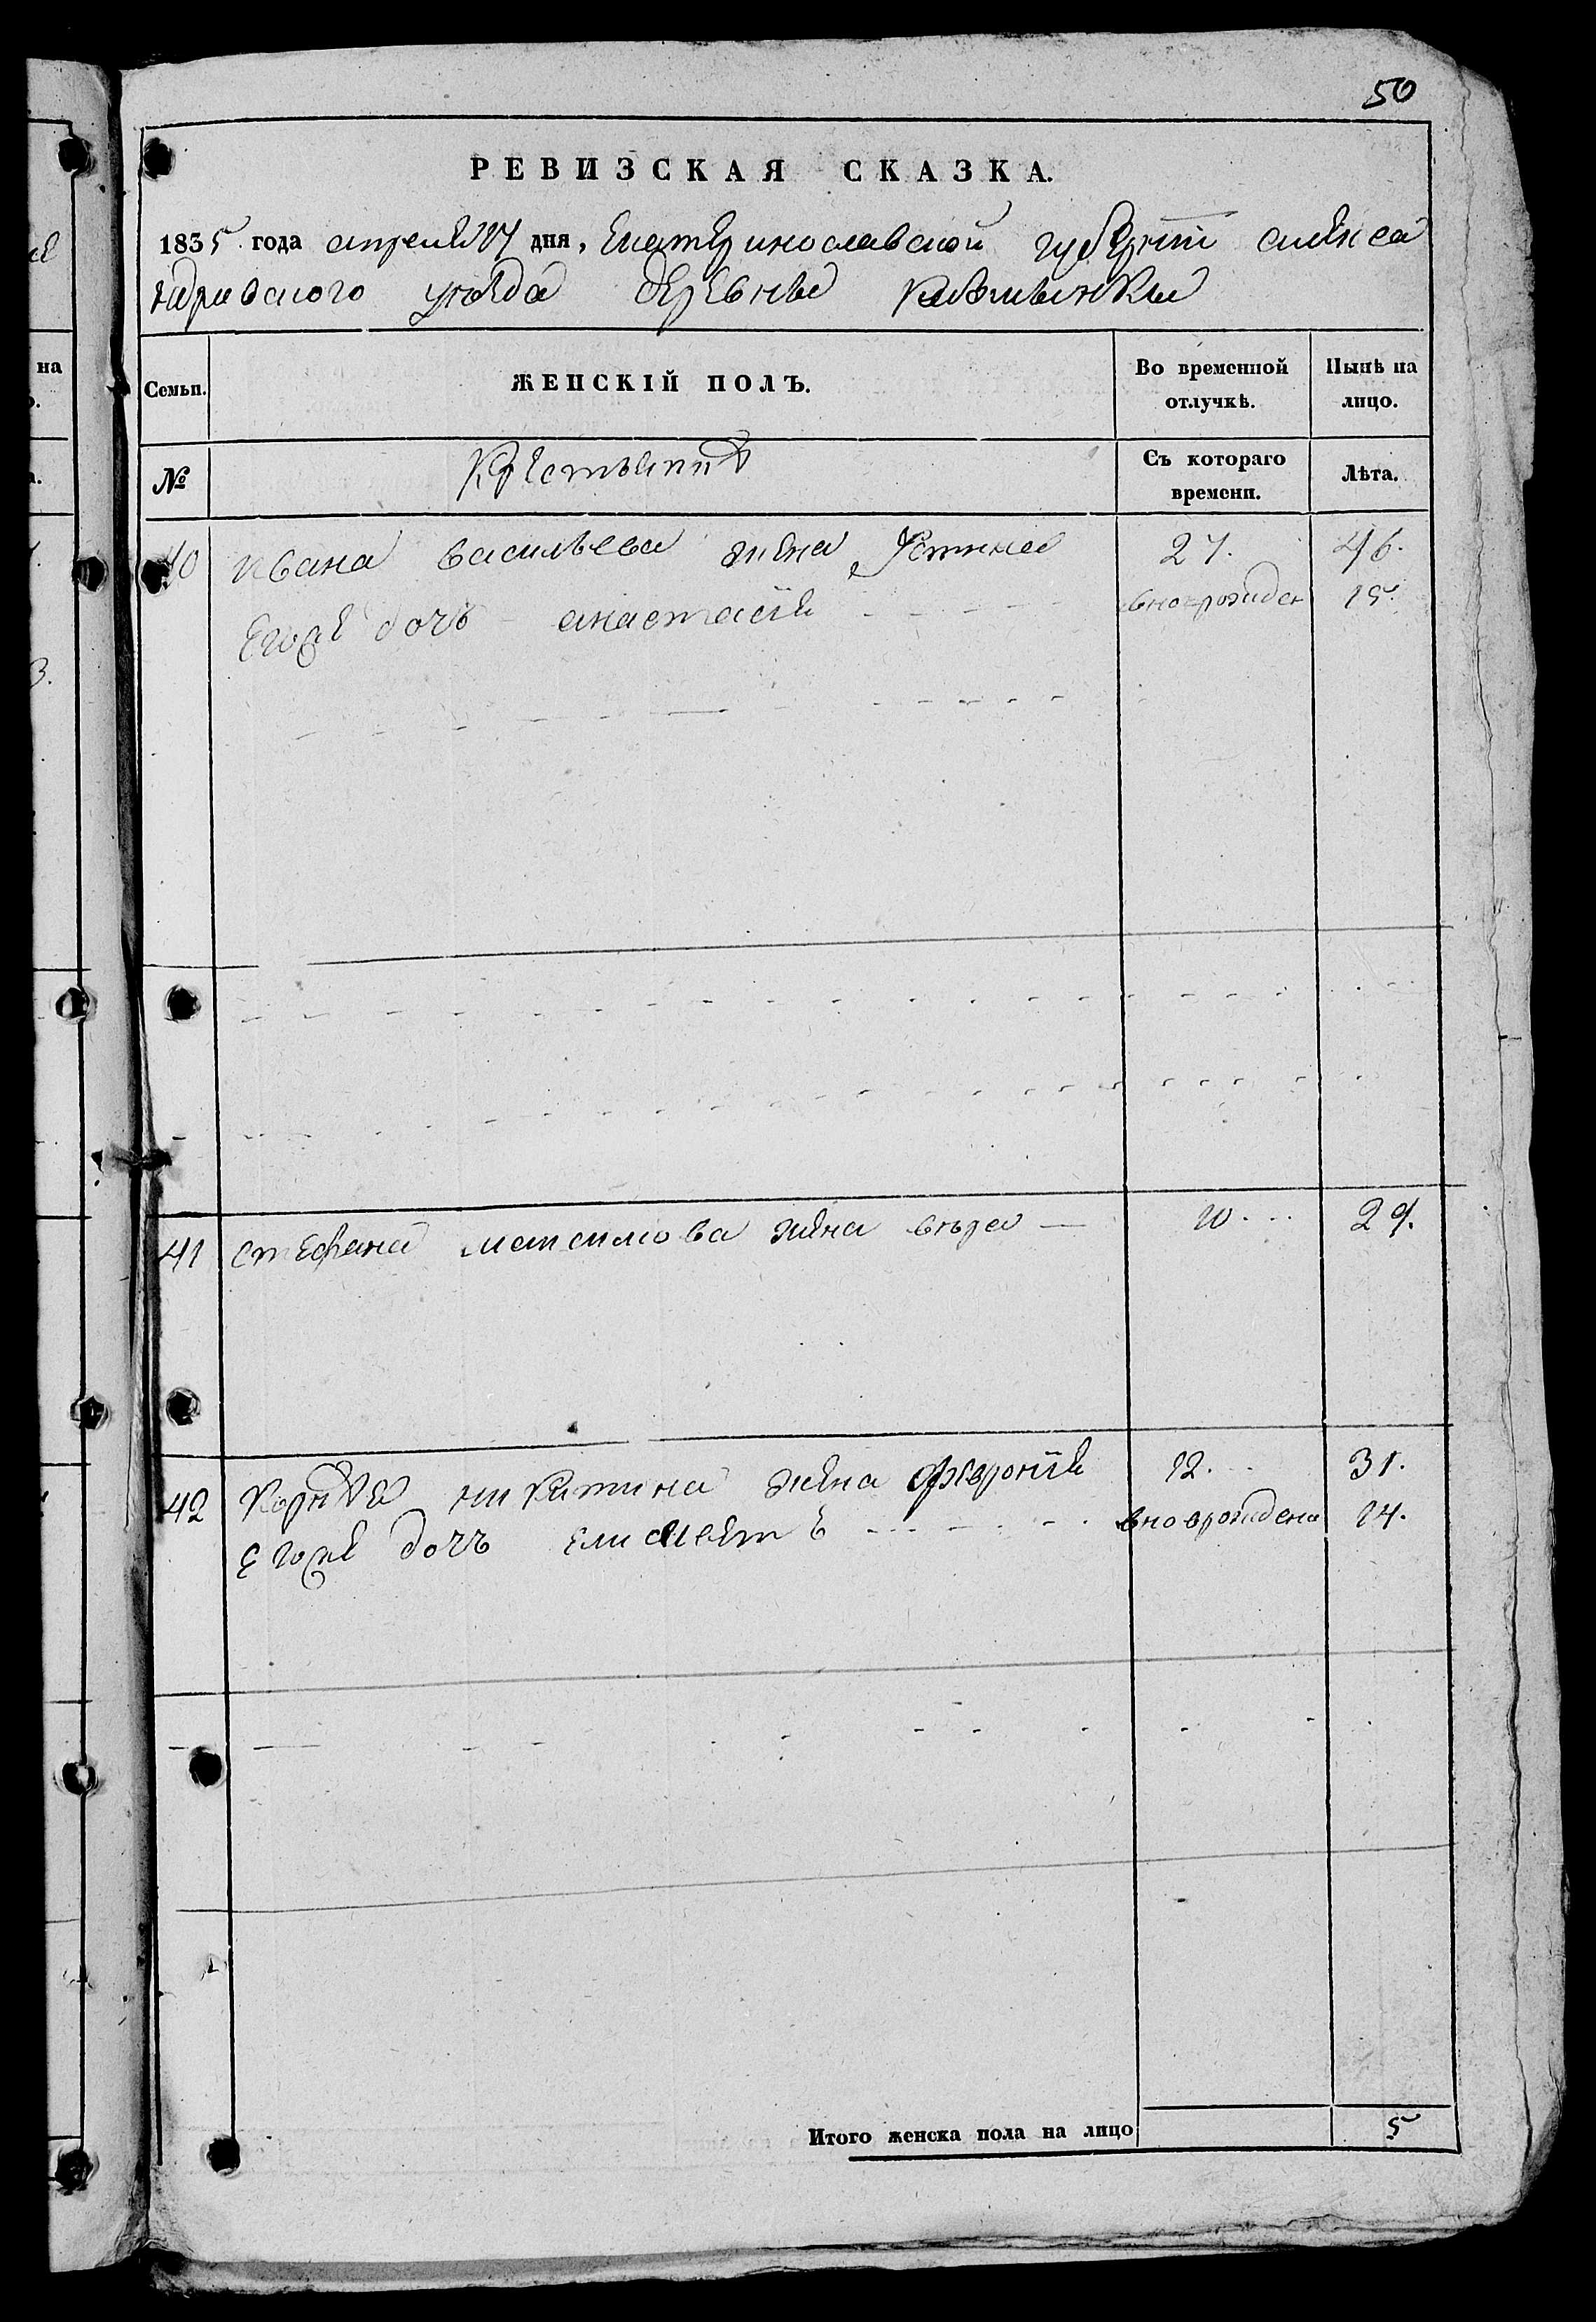 50
РЕВИЗСКАЯ СКАЗКА.
1835 года апреля дня, Екатеринославской губернiи алекса
ндровского уезда деревни
Семьи. ЖЕНСКІЙ ПОЛЪ. Во временной отлучкѣ. Нынѣ на лицо.
№ Съ котораго времени. Лѣта.
40 ивана васильева жена Устина 27. 46.
Егоже дочь анастасiя вноврожден 15.
41 стефана максимова жена вѣра 10 29.
42 Корнѣя никитина жена февронiя 12. 31.
Егоже дочь вноврождена 14.
Итого женска пола на лицо 5
на